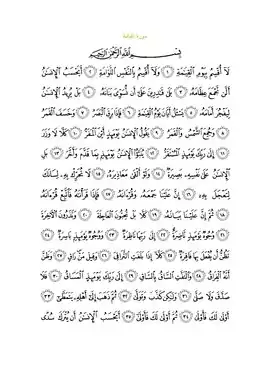 سورة القيامة
بِسْمِ اللَّهِ الرَّحْمَنِ الرَّحِيمِ
لَا أُقْسِمُ بِيَوْمِ الْقِيَامَةِ ١ وَلَا أُقْسِمُ بِالنَّفْسِ اللَّوَّامَةِ ٢ أَيَحْسَبُ الْإِنْسَانُ
أَلَّنْ نَجْمَعَ عِظَامَهُ ٣ بَلَى قَادِرِينَ عَلَى أَنْ نُسَوِّيَ بَنَانَهُ ٤ بَلْ يُرِيدُ الْإِنْسَانُ
لِيَفْجُرَ أَمَامَهُ ٥ يَسْأَلُ أَيَّانَ يَوْمُ الْقِيَامَةِ ٦ فَإِذَا بَرِقَ الْبَصَرُ ٧ وَخَسَفَ الْقَمَرُ
٨ وَجُمِعَ الشَّمْسُ وَالْقَمَرُ ٩ يَقُولُ الْإِنْسَانُ يَوْمَئِذٍ أَيْنَ الْمَفَرُّ ١٠ كَلَّا لَا وَزَرَ
١١ إِلَى رَبِّكَ يَوْمَئِذٍ الْمُسْتَقَرُّ ١٢ يُنَبَّأُ الْإِنْسَانُ يَوْمَئِذٍ بِمَا قَدَّمَ وَأَخَّرَ ١٣ بَلِ
الْإِنْسَانُ عَلَى نَفْسِهِ بَصِيرَةٌ ١٤ وَلَوْ أَلْقَى مَعَاذِيرَهُ ١٥ لَا تُحَرِّكْ بِهِ لِسَانَكَ
لِتَعْجَلَ بِهِ ١٦ إِنَّ عَلَيْنَا جَمْعَهُ وَقُرْآنَهُ ١٧ فَإِذَا قَرَأْنَاهُ فَاتَّبِعْ قُرْآنَهُ
١٨ ثُمَّ إِنَّ عَلَيْنَا بَيَانَهُ ١٩ كَلَّا بَلْ تُحِبُّونَ الْعَاجِلَةَ ٢٠ وَتَذَرُونَ الْآخِرَةَ
٢١ وُجُوهٌ يَوْمَئِذٍ نَاضِرَةٌ ٢٢ إِلَى رَبِّهَا نَاظِرَةٌ ٢٣ وَوُجُوهٌ يَوْمَئِذٍ بَاسِرَةٌ ٢٤
تَظُنُّ أَنْ يُفْعَلَ بِهَا فَاقِرَةٌ ٢٥ كَلَّا إِذَا بَلَغَتِ التَّرَاقِيَ ٢٦ وَقِيلَ مَنْ رَاقٍ ٢٧ وَظَنَّ
أَنَّهُ الْفِرَاقُ ٢٨ وَالْتَفَّتِ السَّاقُ بِالسَّاقِ ٢٩ إِلَى رَبِّكَ يَوْمَئِذٍ الْمَسَاقُ ٣٠ فَلَا
صَدَّقَ وَلَا صَلَّى ٣١ وَلَكِنْ كَذَّبَ وَتَوَلَّى ٣٢ ثُمَّ ذَهَبَ إِلَى أَهْلِهِ يَتَمَطَّى ٣٣
أَوْلَى لَكَ فَأَوْلَى ٣٤ ثُمَّ أَوْلَى لَكَ فَأَوْلَى ٣٥ أَيَحْسَبُ الْإِنْسَانُ أَنْ يُتْرَكَ سُدًى